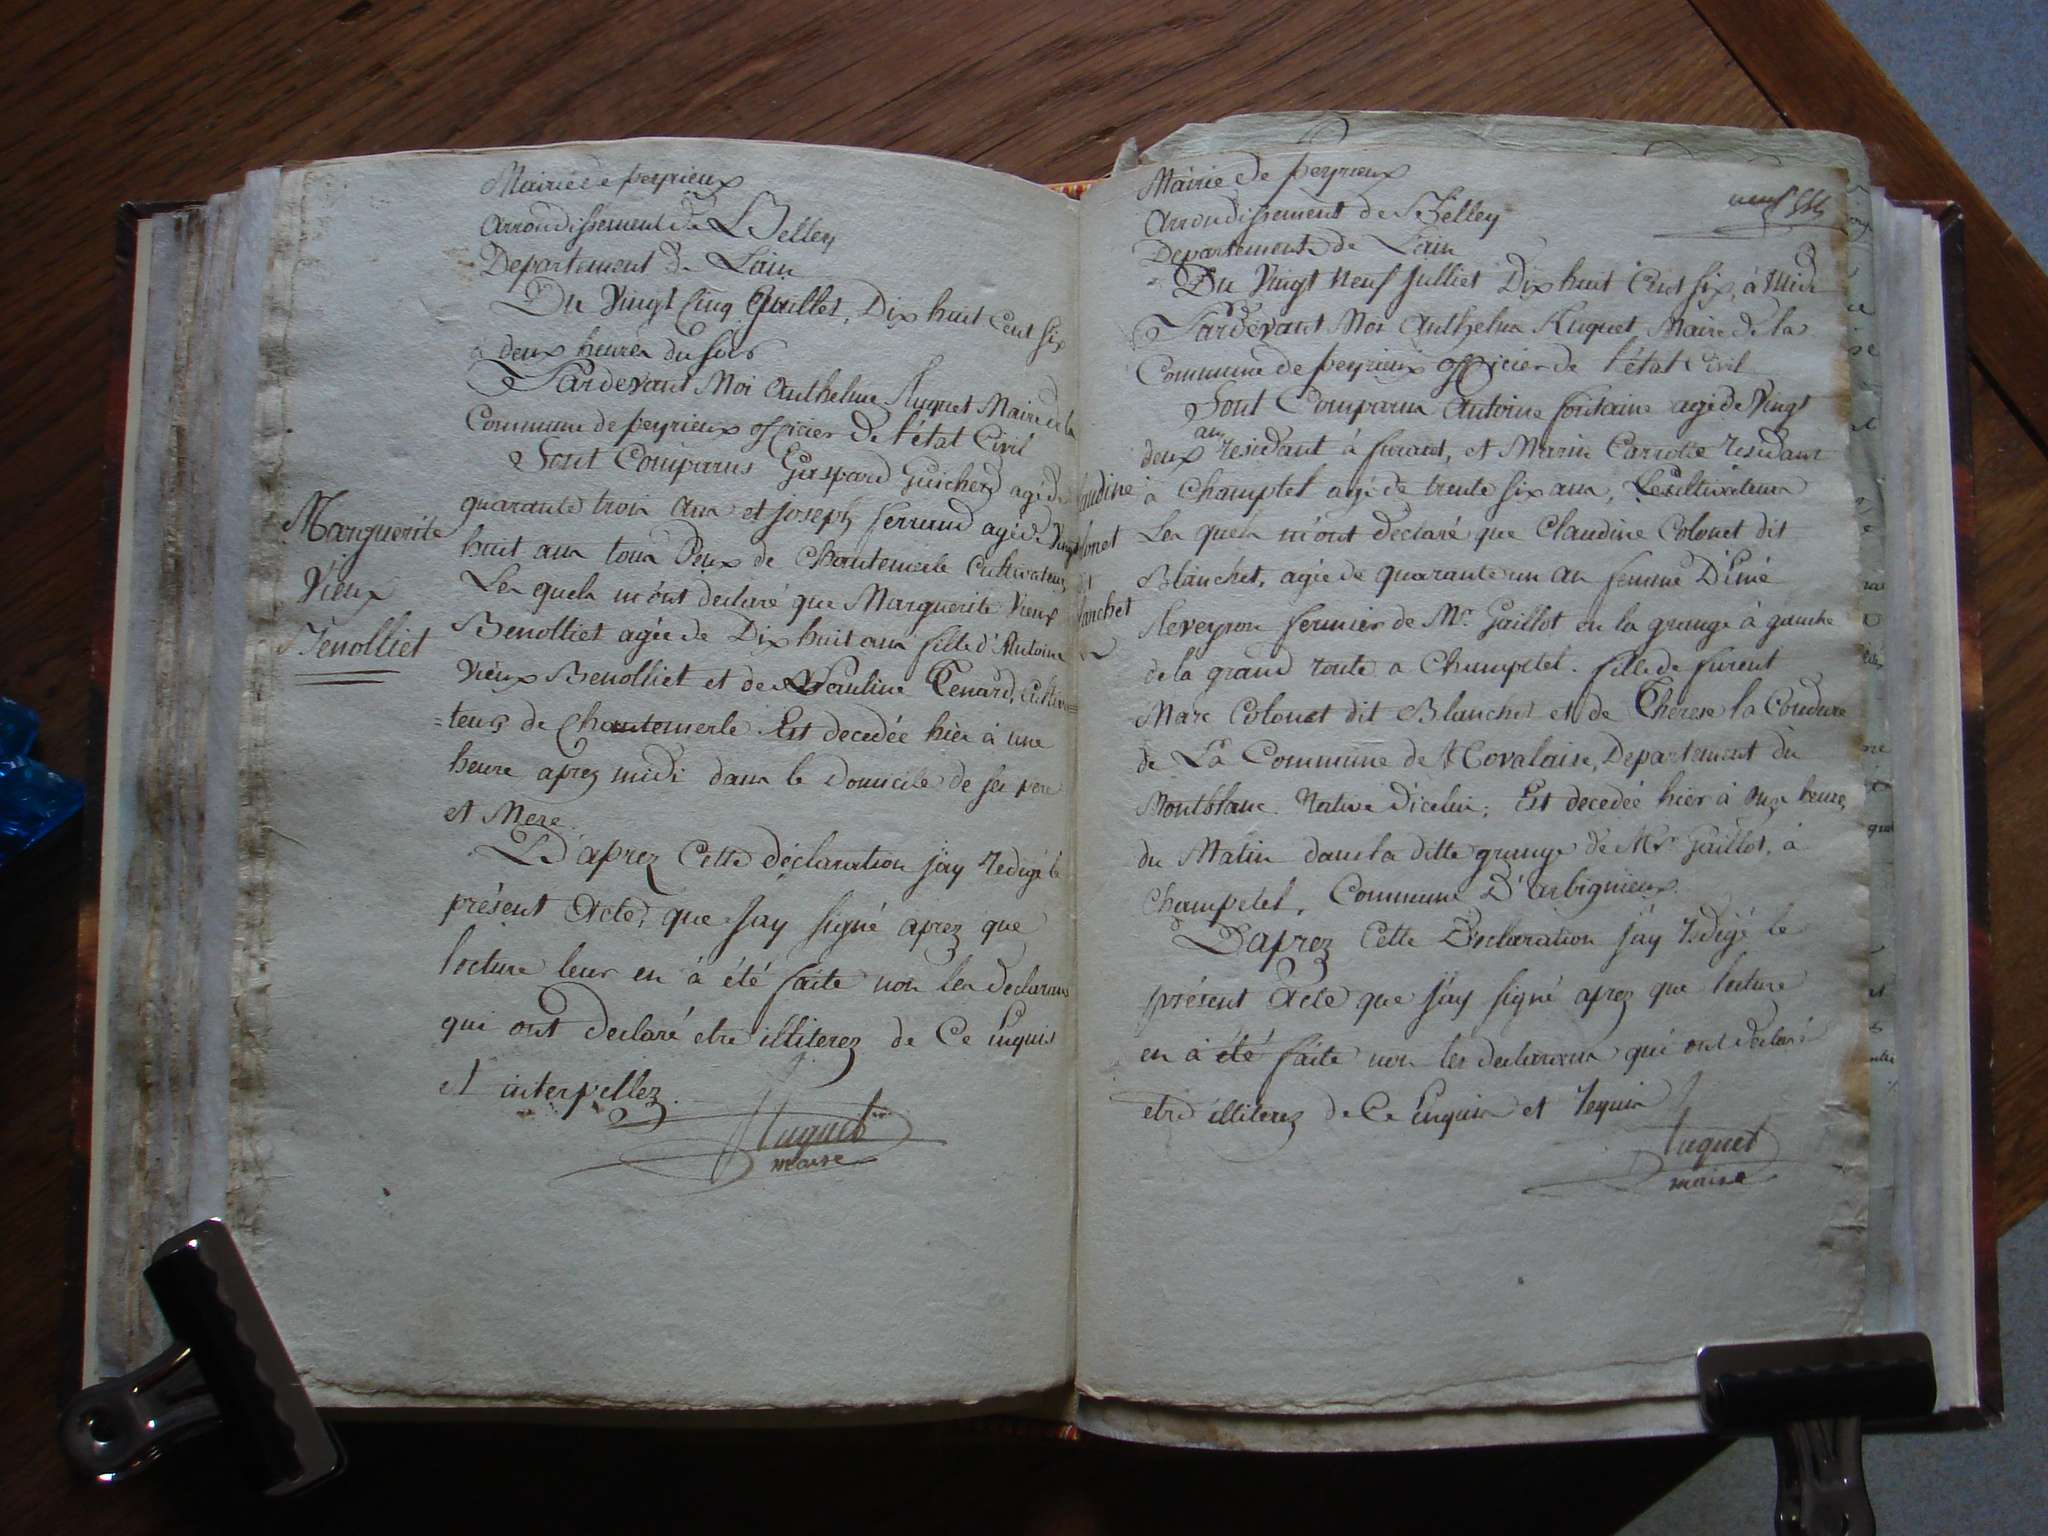 Mairie de peyrieux
arrondissement de Belley
Departement de Lain
Du Vingt Cinq Juillet, Dix huit Cent Six
a deux heures du Soir
Pardevant Moi Anthelme Huguet Maire de la
Commune de peyrieux officier de l'état Civil
Sont Comparus Gaspard Guicherd agé de
quarante trois ans et joseph ferrand agé de Vingt
huit ans tous Deux de Chantemerle Cultivateurs
Les quels m'ont declaré que Marguerite Vieux
Benolliet agée de Dix huit ans fille d'Antoine
Vieux Benolliet et de Pauline Tenard, Cultiva=
=teurs de Chantemerle Est decedée hier à une
heure aprez midi dans le Domicile de ses pere
et Mere.
D'aprez Cette déclaration j'ay redigé le
présent Acte, que Jay signé aprez que
lecture leur en à été faite non les declarans
qui ont declaré etre illiterez de Ce Enquis
et interpellez.
Huguet
maire
Marguerite
Vieux
Benolliet
Mairie de peyrieux
arrondissement de Belley
Departement de Lain
neuf
Du Vingt Neuf Julliet Dix huit Cent six, à Midi
Pardevant Moi Anthelm Huguet Maire de la
Commune de peyrieux officier de l'état Civil
Sont Comparus Antoine fontaine agé de Vingt
deux ans residant à furand, et Marin residant
à Champtel agé de trente six ans, Cultivateurs
Les quels m'ont declaré que Claudine Colonet dit
Blanchet, agée de quarante un an femme D'Emé
Reveyron fermier de Mr Gaillot en la grange à gauche
de la grand route a Champtel. fille de furent
Marc Colonet dit Blanchet et de Therese la Coudure
de La Commune de Novalaise, Departement du
Montblanc. Native d'icelui; Est decedée hier à onze heures
du Matin dans la ditte grange de Mr Gaillot, à
Champtel, Commune D'arbignieux.
D'aprez Cette Déclaration j'ay redigé le
présent Acte que j'ay signé aprez que lecture
en à été faite non les declarans qui ont declaré
etre illiterez de Ce Enquis et requis
Huguet
maire
audine
lonet
dit
lanchet